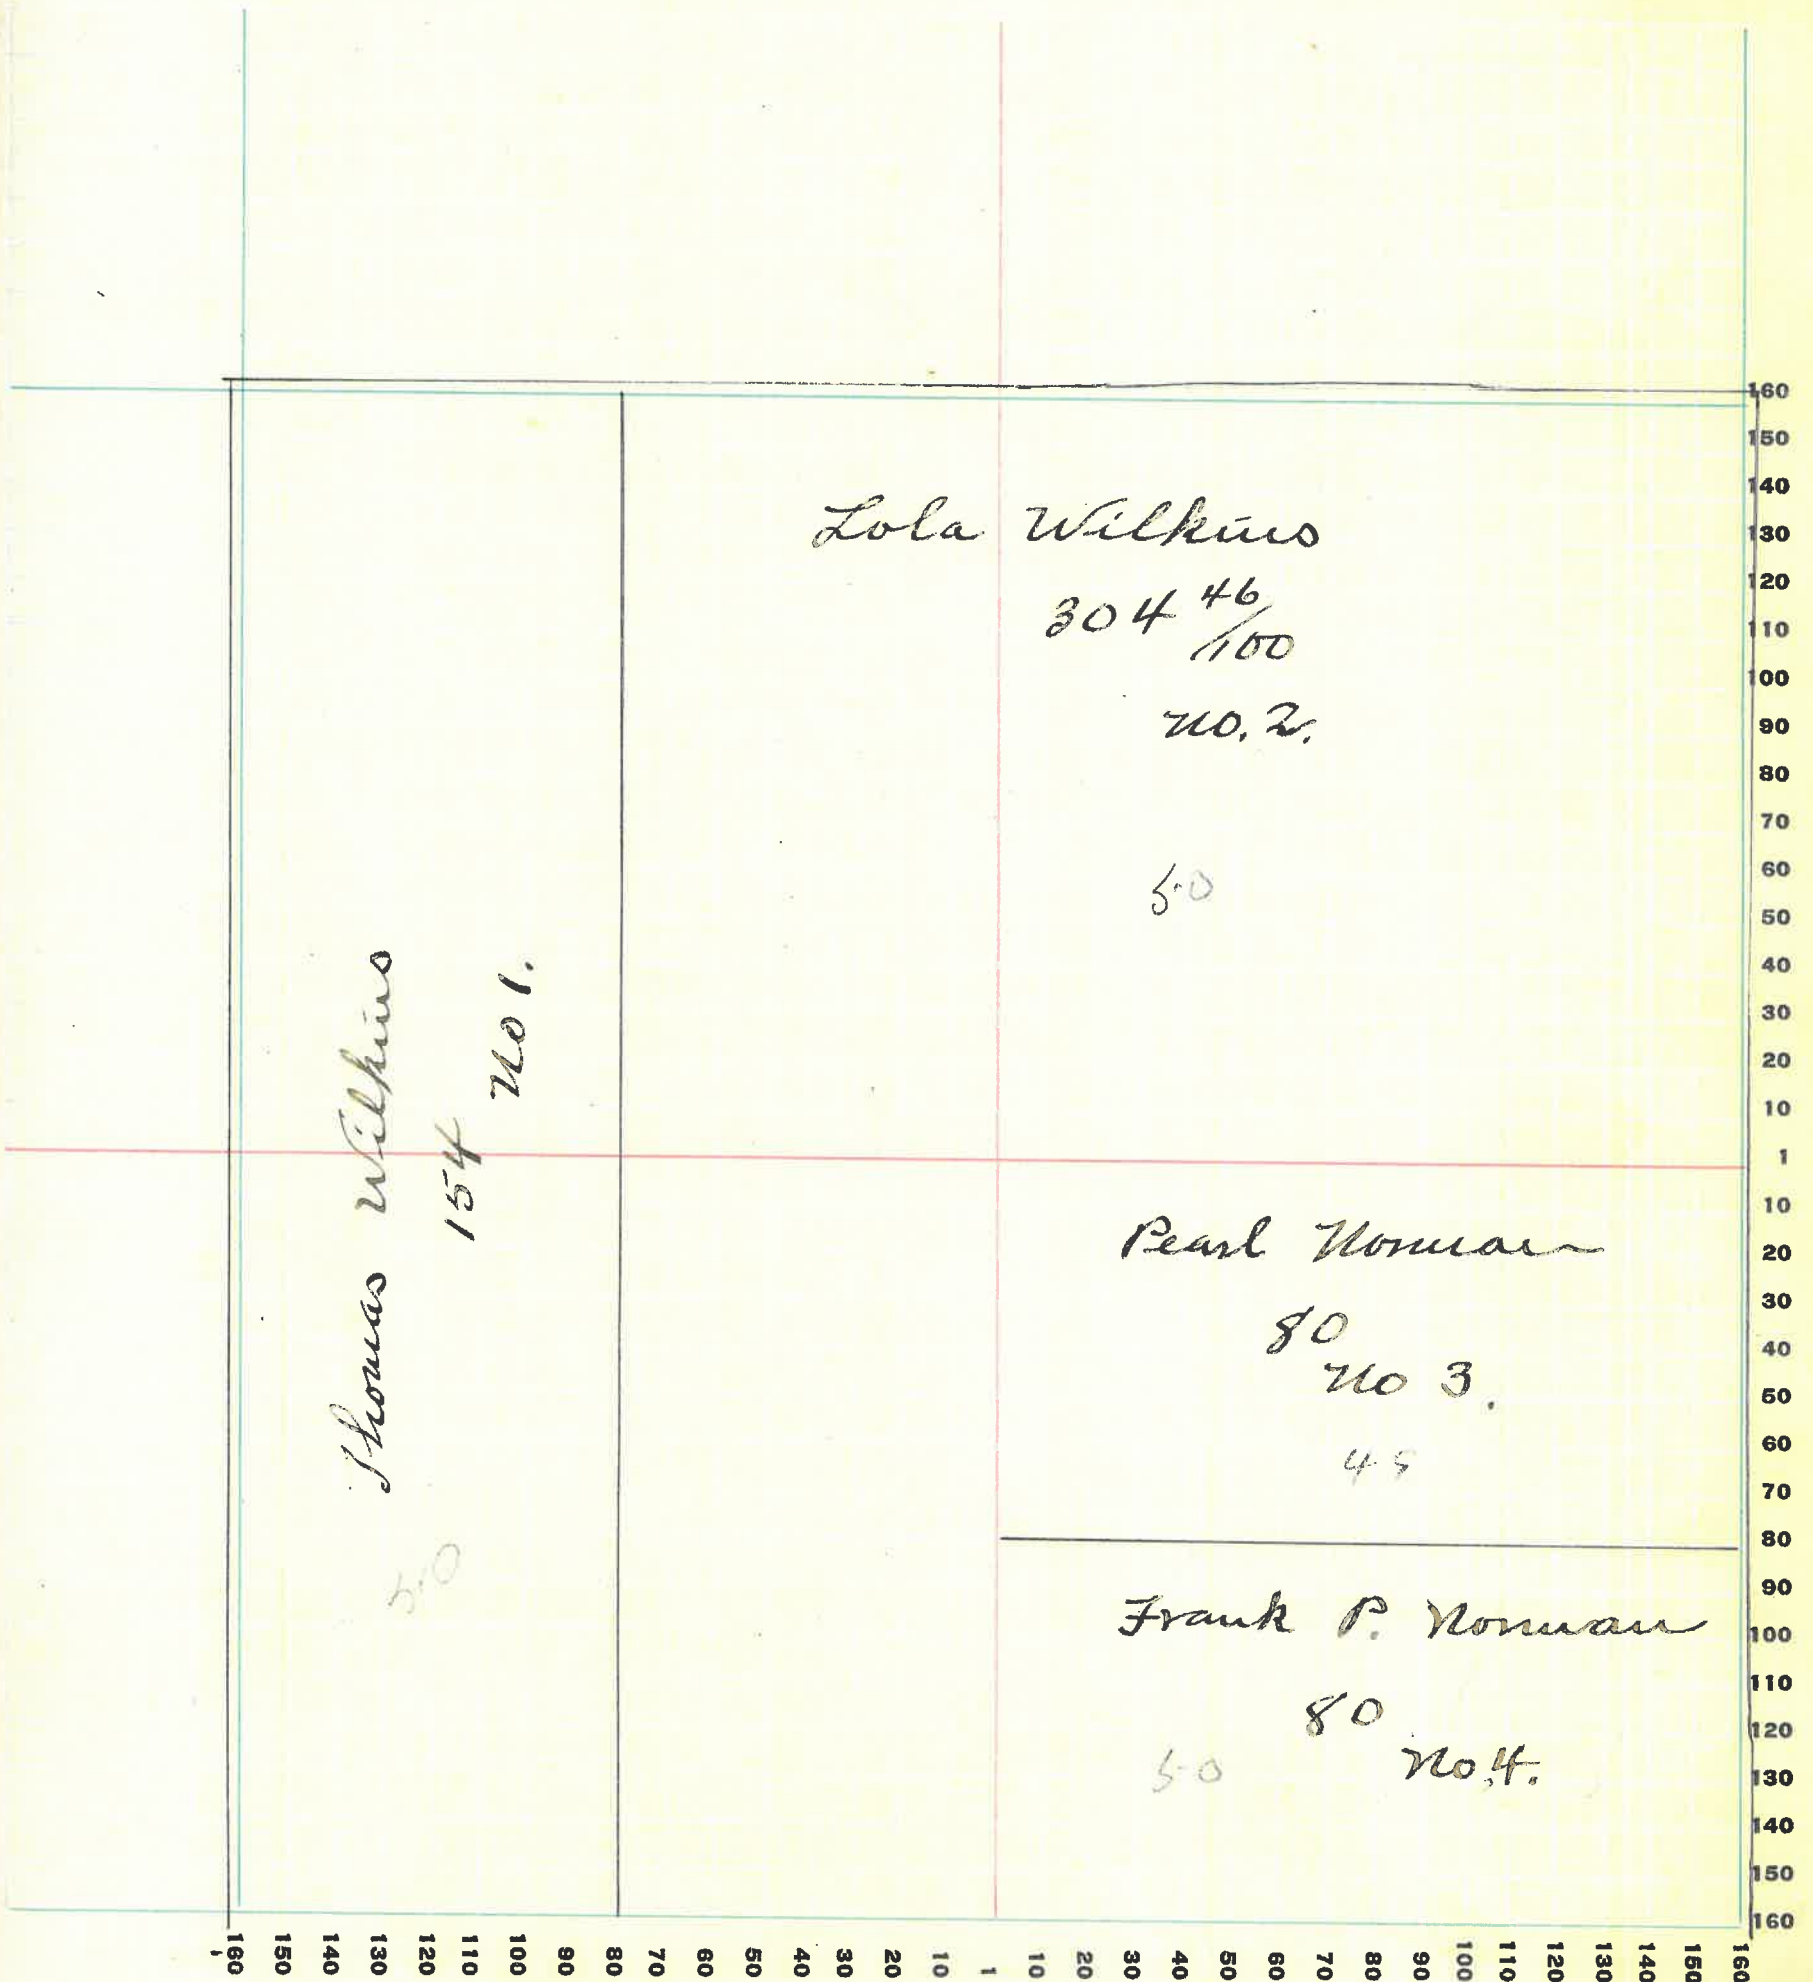 Lola Wilkins
304 46/100
No. 2.
50
Thomas Wilkins
154
No 1.
50
Pearl Norman
80
No 3.
45
Frank P. Norman
80
No. 4.
50
160
150
140
130
120
110
100
90
80
70
60
50
40
30
20
10
1
10
20
30
40
50
60
70
80
90
100
110
120
130
140
150
160
160 150 140 130 120 110 100 90 80 70 60 50 40 30 20 10 1 10 20 30 40 50 60 70 80 90 100 110 120 130 140 150 160